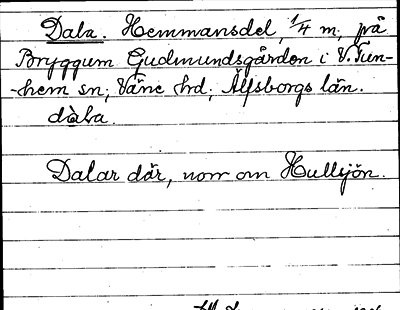 Dala. Hemmansdel, 1/4 m, på
Bryggum Gudmundsgården i V. Tun-
-hem sn, Väne hd, Älfsborgs län.
dàla.
Dalar där, norr om Hullsjön.